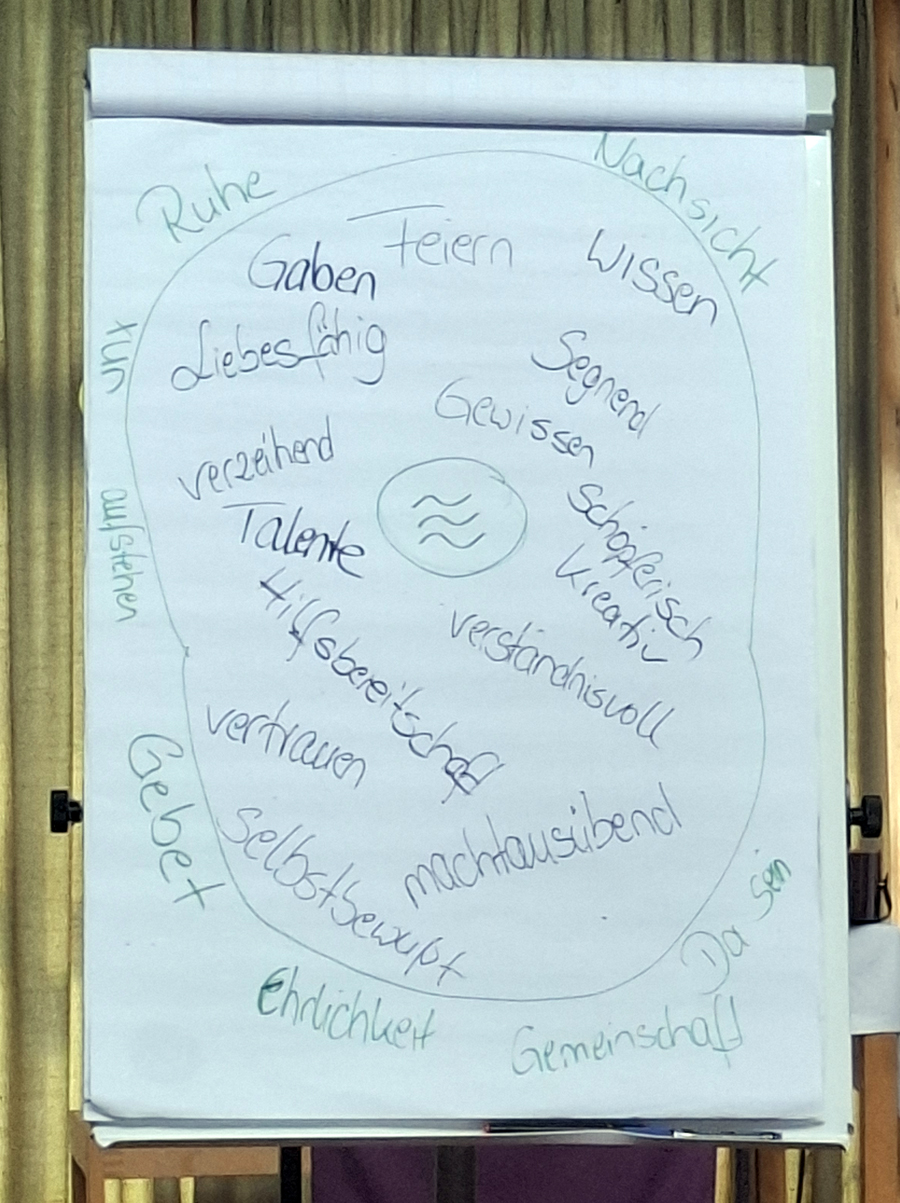 Ruhe
Nachsicht
Feiern
Wissen
Gaben
Liebesfähig
tun
Segnend
Gewissen
verzeihend
Talente
Schöpferisch
kreativ
aufstehen
Hilfsbereitschaft
verständnisvoll
vertrauen
Gebet
Selbstbewußt
machtausübend
Da sein
Ehrlichkeit
Gemeinschaft